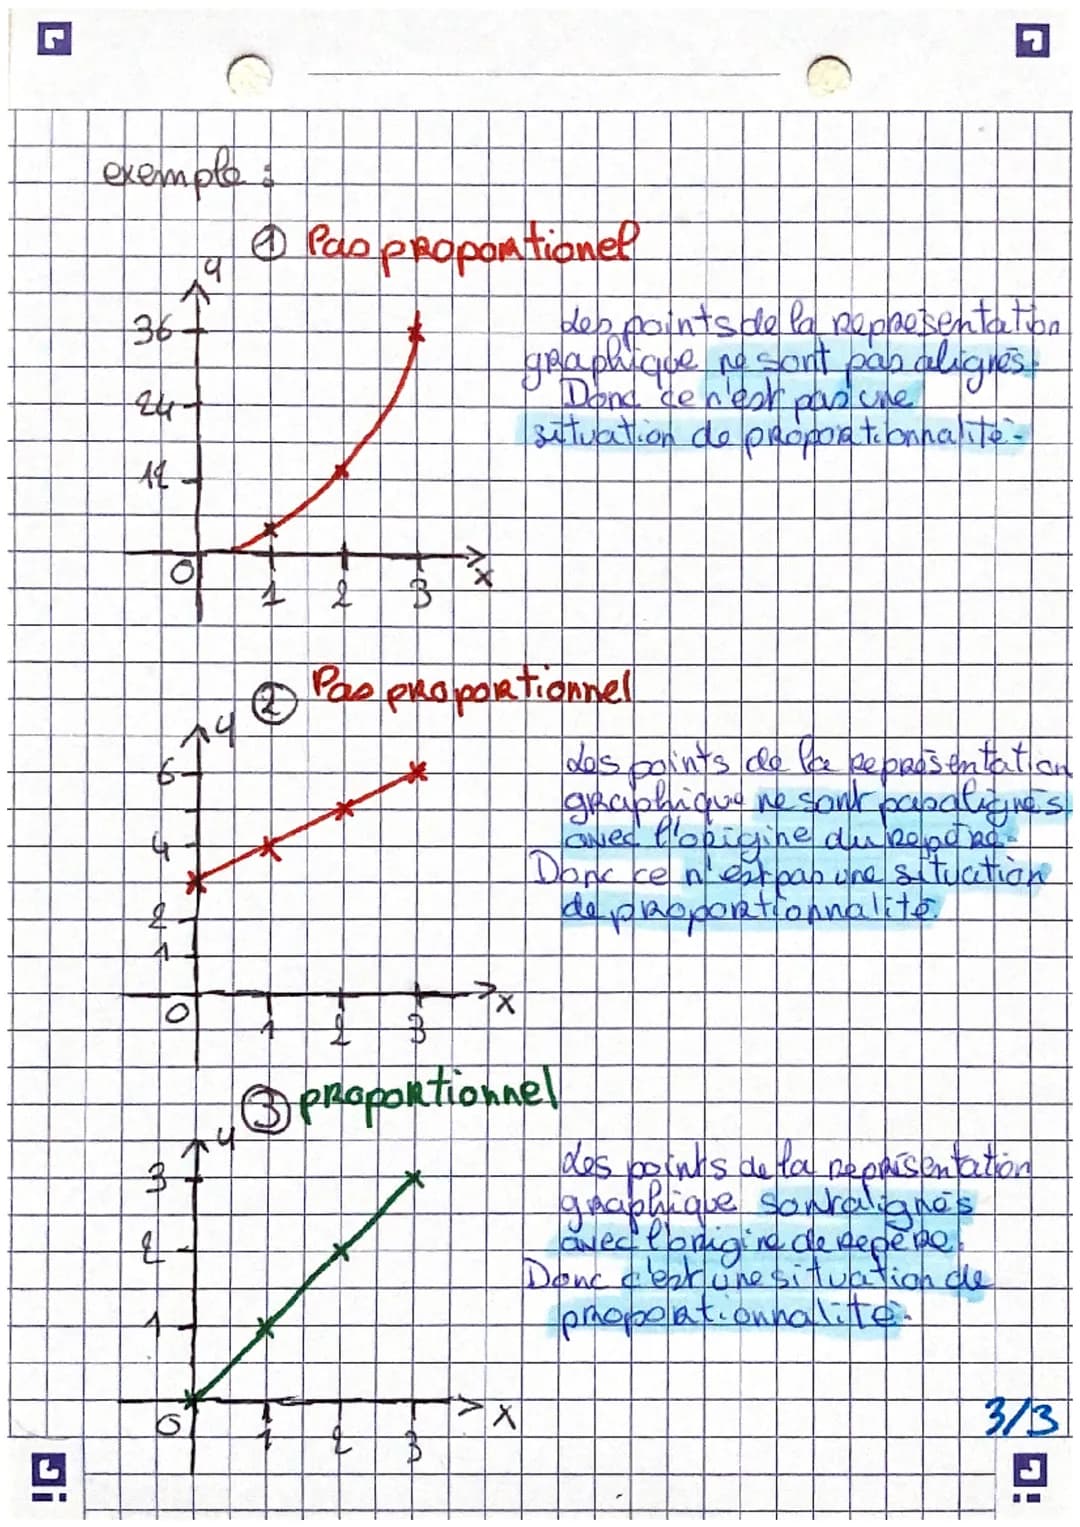 exemple :
① Pas proportionel
y
36
24
12
0
1 2 3 x
Les points de la représentation
graphique ne sont pas alignés.
Donc ce n'est pas une
situation de proportionnalité.
② Pas proportionnel
y
6
4
2
1
0
1 2 3 x
Les points de la représentation
graphique ne sont pas alignés
avec l'origine du repère.
Donc ce n'est pas une situation
de proportionnalité.
③ proportionnel
y
3
2
1
0
1 2 3 x
Les points de la représentation
graphique sont alignés
avec l'origine de repère.
Donc c'est une situation de
proportionnalité.
3/3